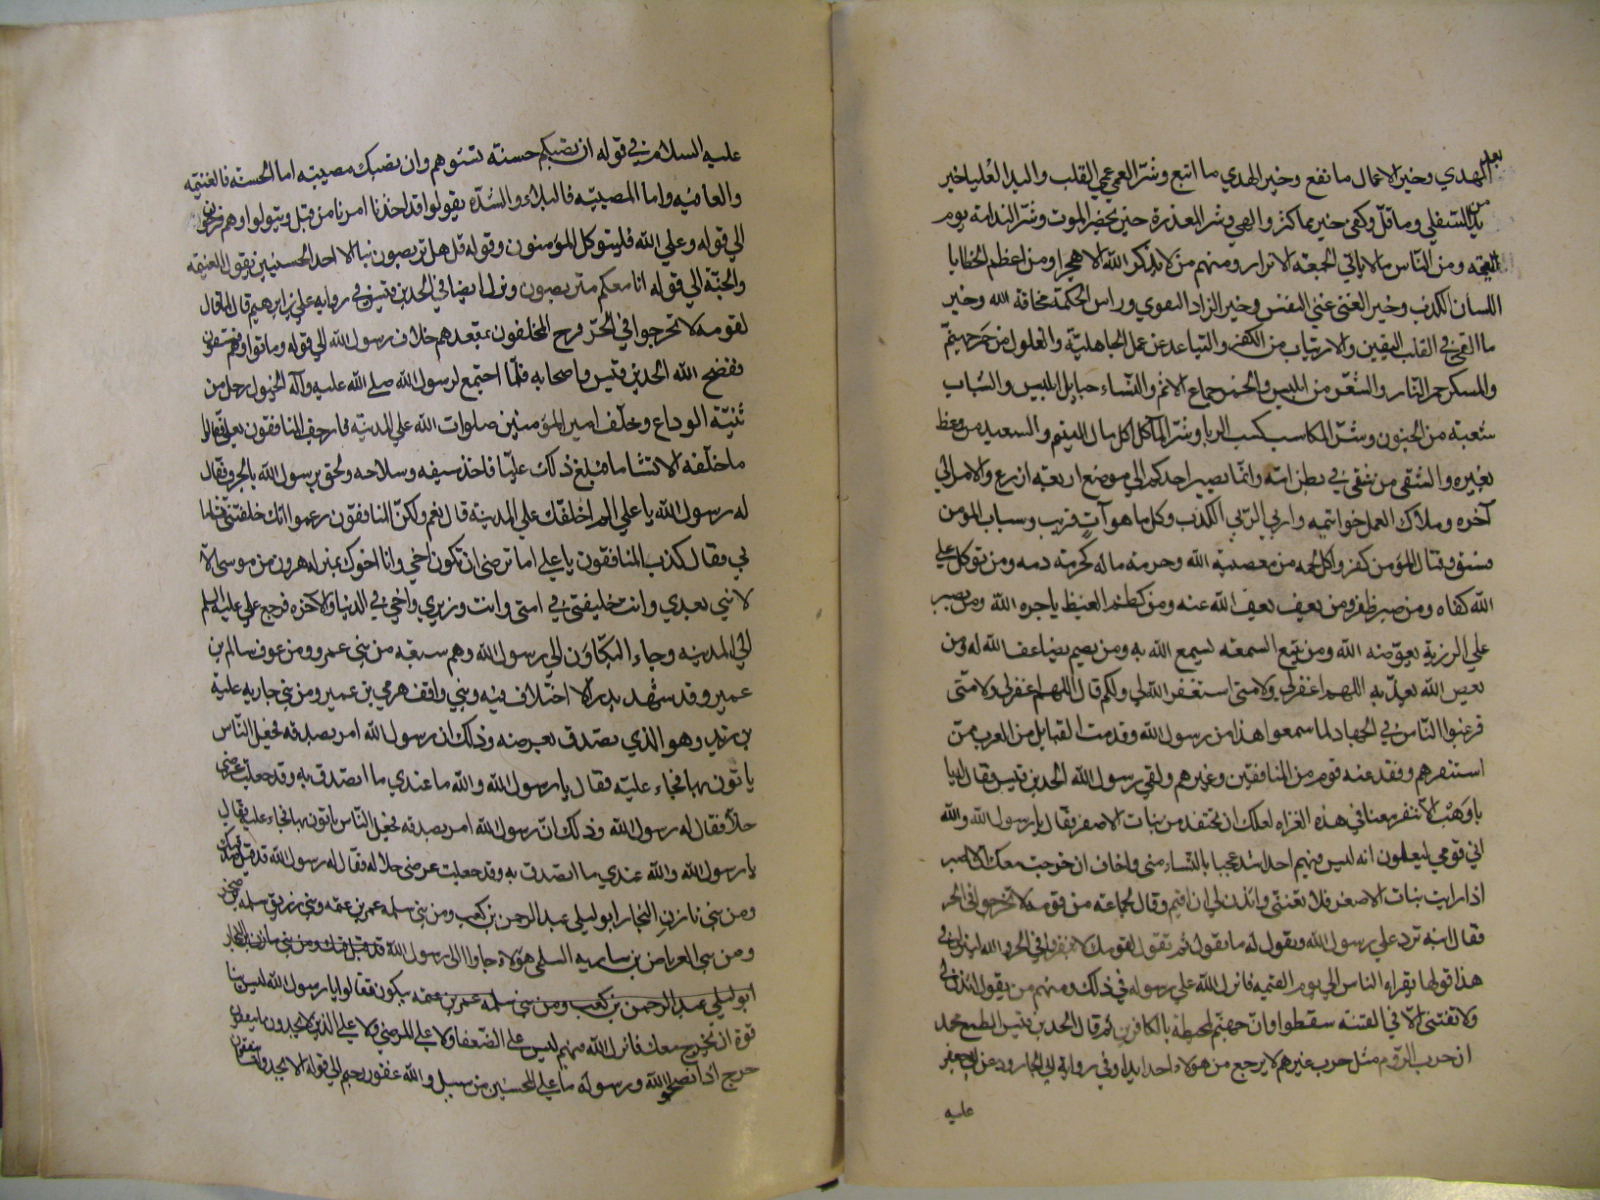 الهدي وخير الاعمال ما نفع وخير الهدي ما اتبع وشر العمي عمي القلب واليد العليا خير
من يد السفلي وما قل وكفى خير مما كثر والهي وشر المعذرة حين يحضر الموت وشر الندامة يوم
القيمة ومن الناس من لا ياتي الجمعة الا نزرا ومنهم من لا يذكر الله الا هجرا ومن اعظم الخطايا
اللسان الكذب وخير الغنى غني النفس وخير الزاد التقوي وراس الحكمة مخافة الله وخير
ما القي في القلب اليقين والارتياب من الكفر والتباعد من عمل الجاهلية والغلول من جهنم
والسكر جمر النار والشعر من ابليس والخمر جماع الاثم والنساء حبايل ابليس والشباب
شعبة من الجنون وشر المكاسب كسب الربا وشر المآكل اكل مال اليتيم والسعيد من وعظ
بغيره والشقي من شقي في بطن امه وانما يصير احدكم الي موضع اربعة اذرع والامر الي
آخره وملاك العمل خواتيمه واربي الربي الكذب وكل ما هو آت قريب وسباب المومن
فسق وقتال المؤمن كفر واكل لحمه من معصية الله وحرمة ماله كحرمة دمه ومن توكل علي
الله كفاه ومن صبر ظفر ومن يعف يعف الله عنه ومن كظم الغيظ ياجره الله ومن يصبر
علي الرزية يعوضه الله ومن يتبع السمعة يسمع الله به ومن يصم يضاعف الله له ومن
يعص الله يعذبه اللهم اغفر لي ولامتي استغفر الله لي ولكم قال اللهم اغفر لي ولامتي
فرغبوا الناس في الجهاد لما سمعوا هذا من رسول الله وقدمت القبايل من العرب ممن
استنفرهم وقعد عنه قوم من المنافقين وغيرهم ولقي رسول الله الجد بن قيس فقال له يا
با وهب الا تنفر معنا في هذه الغزاة لعلك ان تحتفد من بنات الاصفر فقال يا رسول الله والله
ان قومي ليعلمون انه ليس فيهم احد اشد عجبا بالنساء مني واخاف ان خرجت معك الا اصبر
اذا رايت بنات الاصفر فلا تفتني وائذن لي ان اقيم وقال لجماعة من قومه لا تخرجوا في الحر
فقال ابنه ترد علي رسول الله وتقول له ما تقول ثم تقول لقومك لا تنفروا في الحر والله لينزلن في
هذا قولها يقراه الناس الي يوم القيمة فانزل الله علي رسوله في ذلك ومنهم من يقول ائذن لي
ولا تفتني الا في الفتنة سقطوا وان جهنم لمحيطة بالكافرين ثم قال الجد بن قيس ايطمع محمد
ان حرب الروم مثل حرب غيرهم لا يرجع من هؤلاء احد ابدا وفي رواية ابي الجارود عن ابي جعفر
عليه
عليه السلام في قوله ان تصبكم حسنة تسؤهم وان تصبك مصيبة اما الحسنة فالغنيمة
والعافية واما المصيبة فالبلاء والشدة يقولوا قد اخذنا امرنا من قبل ويتولوا وهم فرحون
الي قوله وعلي الله فليتوكل المؤمنون وقوله قل هل تربصون بنا الا احد الحسنيين يقول الغنيمة
والجنة الي قوله انا معكم متربصون ونزل ايضا في الجد بن قيس في رواية علي بن ابرهيم قال لما قال
لقومه لا تخرجوا في الحر فرح المخلفون بمقعدهم خلاف رسول الله الي قوله وماتوا وهم فسقون
ففضح الله الجد بن قيس واصحابه فلما اجتمع لرسول الله صلي الله عليه وآله الخيول رحل من
ثنية الوداع وخلف امير المؤمنين صلوات الله علي المدينة فارجف المنافقون بعلي فقالوا
ما خلفه الا تشاما فبلغ ذلك عليا فاخذ سيفه وسلاحه ولحق برسول الله بالجرف فقال
له رسول الله يا علي الم اخلفك علي المدينة قال نعم ولكن المنافقون زعموا انك خلفتني تشاما
بي فقال كذب المنافقون يا علي اما ترضي ان تكون اخي وانا اخوك بمنزلة هرون من موسي الا
لا نبي بعدي وانت خليفتي في امتي وانت وزيري واخي في الدنيا والآخرة فرجع علي عليه السلم
الي المدينة وجاء البكاؤن الي رسول الله وهم سبعة من بني عمرو ومن عوف سالم بن
عمير وقد شهد بدرا لا اختلاف فيه وبني واقف هرمي بن عمير ومن بني جارية علية
بن زيد وهو الذي تصدق بعرضه وذلك ان رسول الله امر بصدقة فجعل الناس
ياتون بها فجاء علية فقال يا رسول الله والله ما عندي ما اتصدق به وقد جعلت عرضي
حلا فقال له رسول الله وذلك ان رسول الله امر بصدقة فجعل الناس ياتون بها فجاء علية فقال
يا رسول الله والله عندي ما اتصدق به وقد جعلت عرضي حلا له فقال له رسول الله قد قبل
ومن بني مازن بن النجار ابو ليلي عبد الرحمن بن كعب ومن بني سلمة عمر بن عتمة وبني زريق سلمة
ومن بني العرباض بن سارية السلمي هؤلاء جاؤا الي رسول الله قد قبل منك ومن بني مازن بن النجار
ابو ليلي عبد الرحمن بن كعب ومن بني سلمه عمر بن عتمه يبكون فقالوا يا رسول الله ليس بنا
قوة ان نخرج معك فانزل الله فيهم ليس علي الضعفاء ولا علي المرضي ولا علي الذين لا يجدون ما ينفقون
حرج اذا نصحوا الله ورسوله ما علي المحسنين من سبيل والله غفور رحيم الي قوله الا يجدوا ما ينفقون